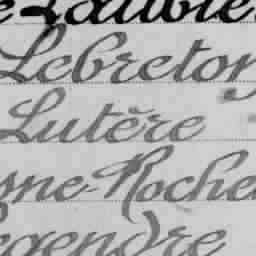 Lebreton
Lutère
gne-Roche
egendre